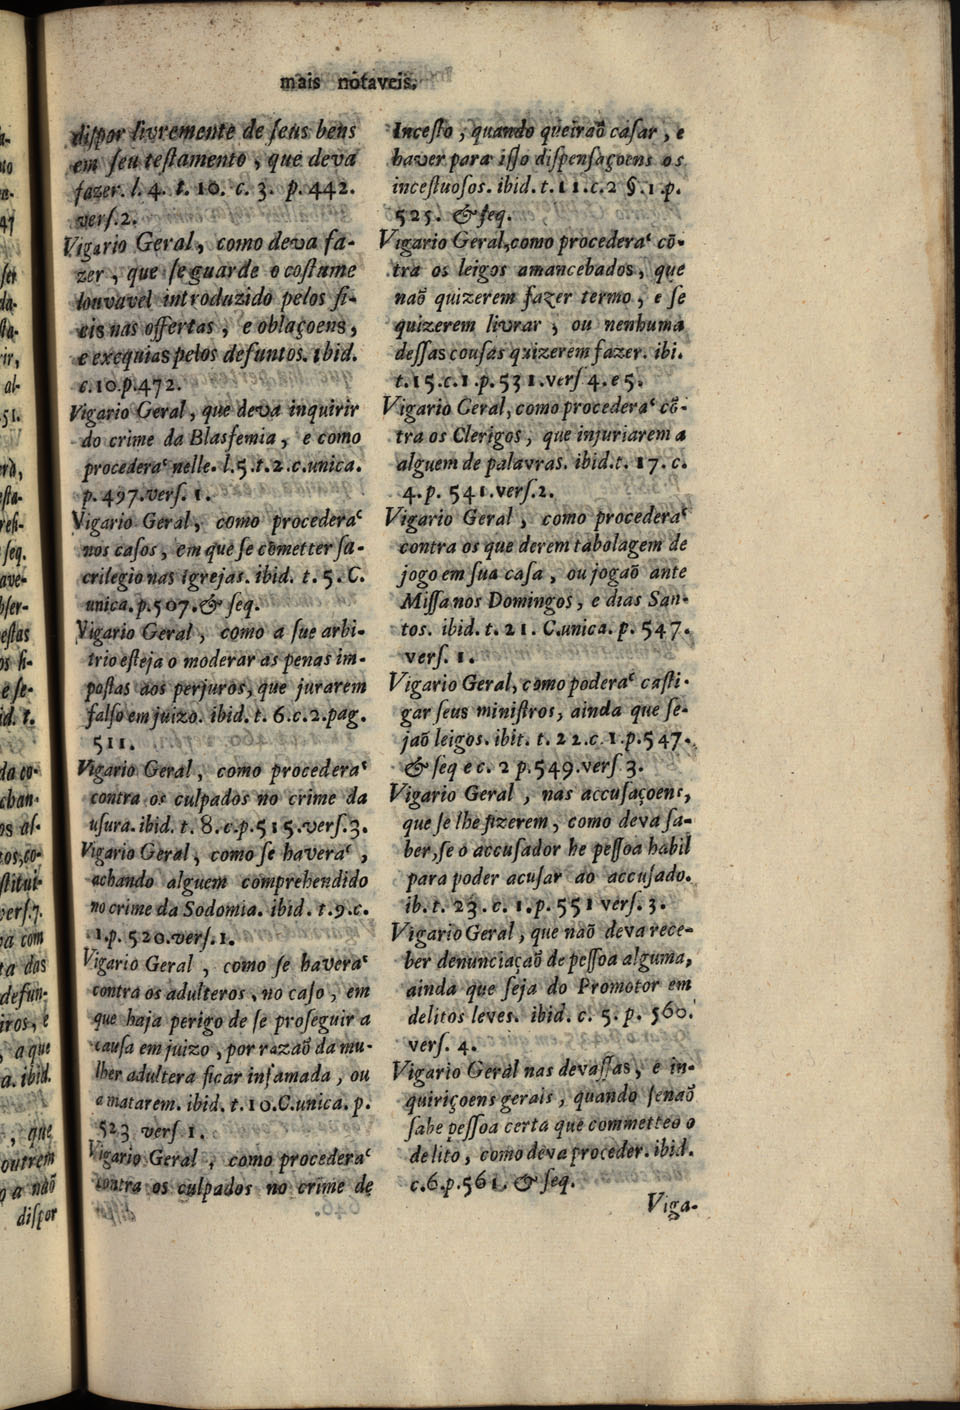 mais notaveis.
dispor livremente de seus bens
em seu testamento, que deva
fazer. l. 4. t. 10. c. 3. p. 442.
vers. 2.
Vigario Geral, como deva fa-
zer, que se guarde o costume
louvavel introduzido pelos fi-
eis nas offertas, e oblaçoens,
e exequias pelos defuntos. ibid.
c. 10. p. 472.
Vigario Geral, que deva inquirir
do crime da Blasfemia, e como
procedera' nelle. l. 5. t. 2. c. unica.
p. 497. vers. 1.
Vigario Geral, como procedera'
nos casos, em que se cometter sa-
crilegio nas igrejas. ibid. t. 5. C.
unica. p. 507. & seq.
Vigario Geral, como a sue arbi-
trio esteja o moderar as penas im-
postas aos perjuros, que jurarem
falso em juizo. ibid. t. 6. c. 2. pag.
511.
Vigario Geral, como procedera'
contra os culpados no crime da
usura. ibid. t. 8. c. p. 515. vers. 3.
Vigario Geral, como se havera',
achando alguem comprehendido
no crime da Sodomia. ibid. t. 9. c.
1. p. 520. vers. 1.
Vigario Geral, como se havera'
contra os adulteros, no caso, em
que haja perigo de se proseguir a
causa em juizo, por razaõ da mu-
lher adultera ficar infamada, ou
a matarem. ibid. t. 10. C. unica. p.
523 vers 1.
Vigario Geral, como procedera'
contra os culpados no crime de
Incesto, quando queiraõ casar, e
haver para isso dispensaçoens os
incestuosos. ibid. t. 11. c. 2 §. 1. p.
525. & seq.
Vigario Geral, como procedera' cõ-
tra os leigos amancebados, que
naõ quizerem fazer termo, e se
quizerem livrar, ou nenhuma
dessas cousas quizerem fazer. ibi.
t. 15. c. 1. p. 531. vers 4. e 5.
Vigario Geral, como procedera' cõ-
tra os Clerigos, que injuriarem a
alguem de palavras. ibid. t. 17. c.
4. p. 541. vers. 2.
Vigario Geral, como procedera'
contra os que derem tabolagem de
jogo em sua casa, ou jogaõ ante
Missa nos Domingos, e dias San-
tos. ibid. t. 21. C. unica. p. 547.
vers. 1.
Vigario Geral, como podera' casti-
gar seus ministros, ainda que se-
jaõ leigos. ibit. t. 22. c. 1. p. 547.
& seq e c. 2 p. 549. vers 3.
Vigario Geral, nas accusaçoens,
que se lhe fizerem, como deva sa-
ber, se o accusador he pessoa habil
para poder acusar ao accusado.
ib. t. 23. c. 1. p. 551 vers. 3.
Vigario Geral, que naõ deva rece-
ber denunciaçaõ de pessoa alguma,
ainda que seja do Promotor em
delitos leves. ibid. c. 5. p. 560.
vers. 4.
Vigario Geral nas devassas, e in-
quiriçoens gerais, quando senaõ
sabe pessoa certa que commetteo o
delito, como deva proceder. ibid.
c. 6. p. 561. & seq.
Viga-